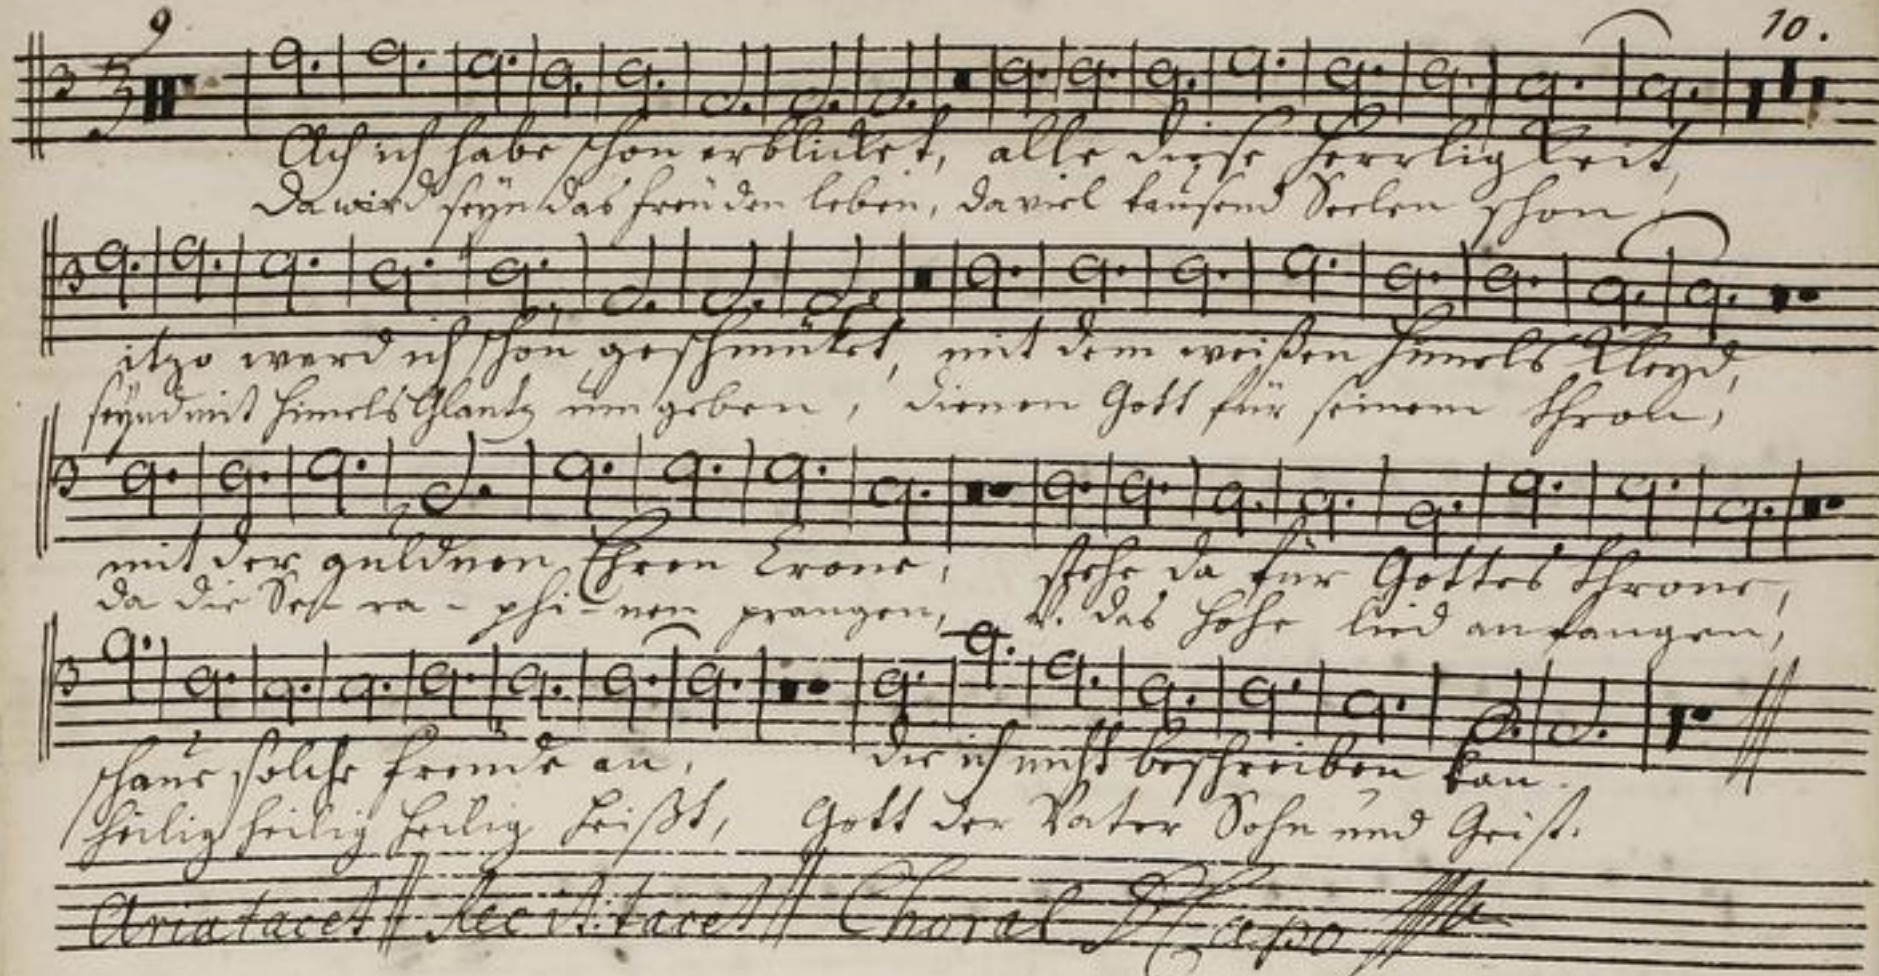 9 10.
Ach ich habe schon erblicket, alle diese Herrligkeit,
Da wird seyn das freuden leben, da viel tausend Seelen schon
itzo werd ich schön geschmücket, mit dem weißen Himels Kleyd,
seynd mit Himels Glantz umgeben, dienen Gott für seinem Thron,
mit der güldnen Ehren Crone, stehe da für Gottes Throne,
da die Se ra - phi - nen prangen, v. das hohe lied anfangen,
schaue solche freude an, die ich nicht beschreiben kan.
heilig heilig heilig heißt, Gott der Vater Sohn und Geist.
Aria tacet Recit: tacet Choral D Capo